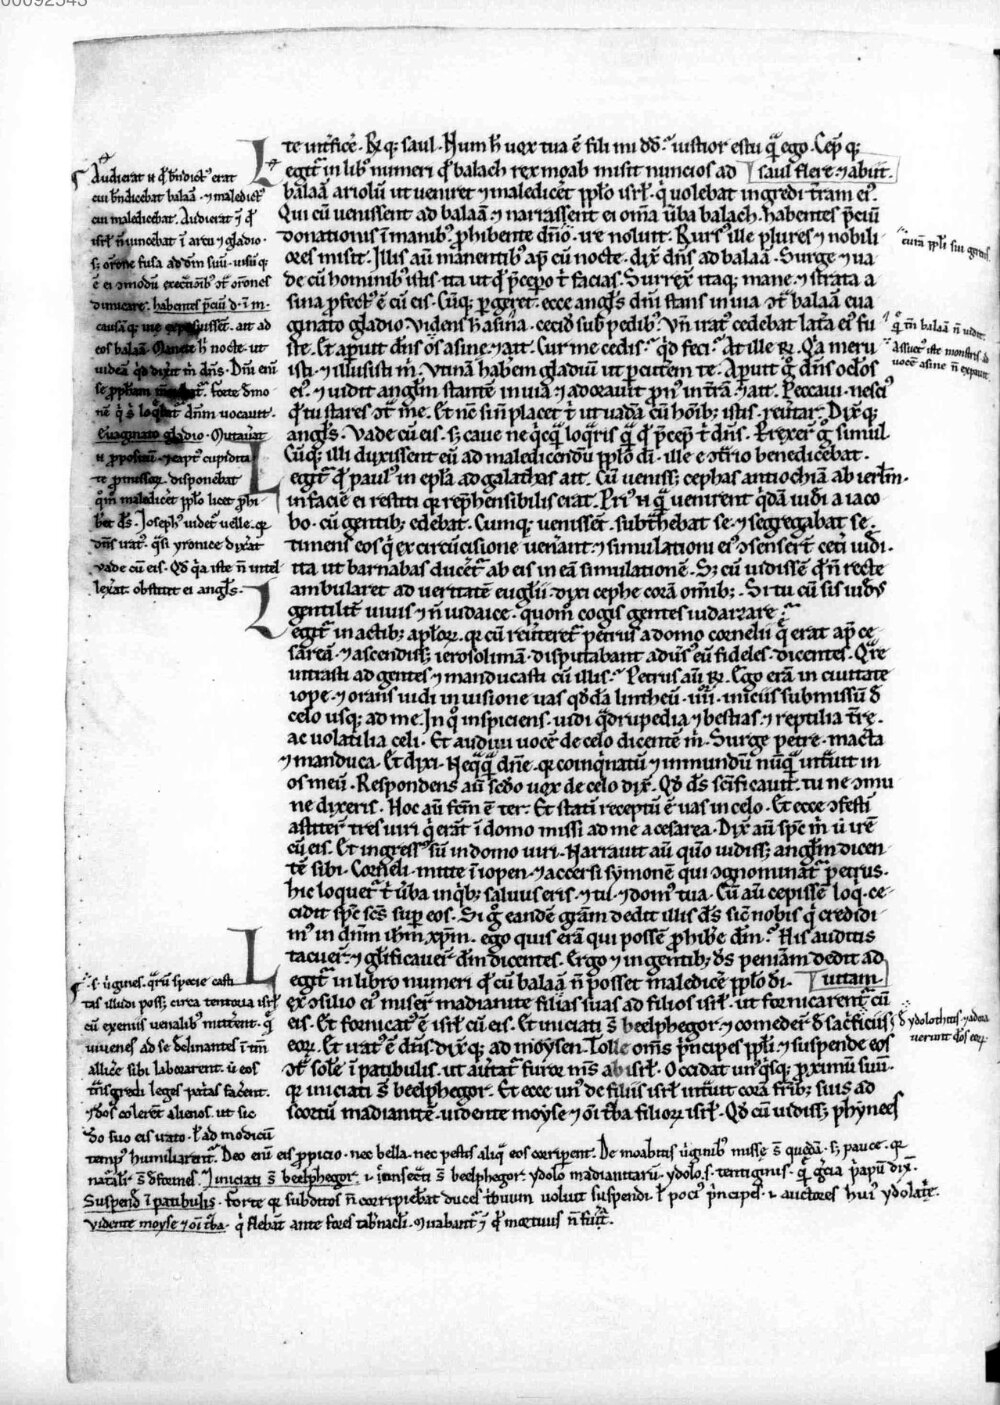 00092543
te int̄fice. R̄ q; saul. Num h̄ uox tua ē fili mi dd̄. iustior es tu q̃ ego. Cep̄ q;
saul flere. ⁊ abiit.
egit̃ in lib̾ numeri qđ balach rex moab misit nuncios ad
balaā ariolū ut ueniret ⁊ malediceret pp̄lo isrł. q̇ uolebat ingredi tr̄am ei᷒.
Qui cū uenissent ad balaā ⁊ narrassent ei om̄ia ūba balach. habentes p̄ciū
donationis ī manib᷒ ꝓhibente dn̄o. ire noluit. Rurs᷒ ille plures ⁊ nobili
ores misit. Illis aū manentib᷒ ap̄ eū nocte. dix̄ dn̄s ad balaā. Surge ⁊ ua
de cū hominib᷒ istis. ita ut qđ p̄cepo t̄ facias. Surrex̄ itaq; mane. ⁊ strata a
sina ꝓfect᷒ ē cū eis. Cūq; ꝑgeret. ecce angls̄ dn̄i stans in uia ɔt̃ balaā eua
ginato gladio. Videns h̄ asina. cecid̄ sub pedib᷒. Vn̄ irat᷒ cedebat lat̄a ei᷒ fu
ste. Et aperuit dn̄s os asine. ⁊ ait. Cur me cedis. qđ feci. At ille R̄. Q̇a meru
isti. ⁊ illusisti m̄. Vtinā haberem gladiū ut ꝑcutem te. Aperuit g̊ dn̄s oc̄los
ei᷒. ⁊ uidit angłm stantē in uia ⁊ adorauit pn᷒ in tr̄ā. ⁊ ait. Peccaui. nesci᷒
q̇ tu stares ɔt̃ me. Et nc̄ si n̄ placet t̄ ut uadā cū hōib; istis. reūtar. Dix̄ q;
angls̄. Vade cū eis. s; caue ne q̇cq̃ loq̃ris q̃ qđ p̄cep̄ t̄ dn̄s. Rrexer̄ g̊ simul
Cūq; illi duxissent eū ad maledicendū pp̄lo dī. ille e ɔt̃rio benedicebat.
egit̃ qđ paul᷒ in ep̄la ad galathas ait. Cū ueniss; cephas antiochiā ab ierłm.
in faciē ei restiti q̄ rep̄hensibilis erat. Pri᷒ n̄ q̃ uenirent q̇dā iudi a iaco
bo. cū gentib; edebat. Cumq; uenissēt. subt̾hebat se. ⁊ segregabat se.
timens eos q̇ ex circūcisione uen̄ant. ⁊ simulationi ei᷒ ɔsenser̄t cet̄i iudi.
ita ut barnabas ducēt̃ ab eis in eā simulationē. S; cū uidissē qđ n̄ recte
ambularet ad ueritatē euglii. dixi cephe corā om̄ib;. Si tu cū sis iud᷒s
gentilit̄ uiuis ⁊ n̄ iudaice. quom̊ cogis gentes iudaizare.
egit̃ in actib; apłoꝝ. q̄ cū reūteret̃ petrus a domo cornelii q̇ erat ap̄ ce
sareā. ⁊ ascendiss; ierosolimā. disputabant adūs᷒ eū fideles. dicentes. Q̃re
intrasti ad gentes ⁊ manducasti cū illis. Petrus aū R̄. Ego erā in ciuitate
iope. ⁊ orans uidi in uisione uas qđdā lintheū. iiii. iniciis submissū đ
celo usq; ad me. In q̊ inspiciens. uidi q̃drupedia ⁊ bestias. ⁊ reptilia tr̄e.
ac uolatilia celi. Et audiui uocē de celo dicentē m̄. Surge petre. macta
⁊ manduca. Et dixi. Neq̃q̃ dn̄e. q̄ coinq̇natū ⁊ immundū nūq̃ int̃uit in
os meū. Respondens aū sc̄do uox de celo dix̄. Qđ đs sc̄ificauit. tu ne ɔmu
ne dixeris. Hoc aū fc̄m ē ter. Et stati receptū ē uas in celo. Et ecce ɔfesti
astiter̄ tres uiri q̇ erāt ī domo missi ad me a cesarea. Dix̄ aū sp̄c m̄ ū irē
cū eis. Et ingress᷒ sū in domo uiri. Narrauit aū quō uidiss; angłm dicen
tē sibi. Corneli. mitte ī iopen. ⁊ accersi symonē qui ɔgnominat̃ petrus.
hic loquet̃ t̄ ūba in q̇b; saluus eris. ⁊ tu. ⁊ dom᷒ tua. Cū aū cepissē loq̇. ce
cidit sp̄c sc̄s sup̄ eos. Si g̊ eandē gr̄am dedit illis đs sic̄ nobis q̇ credidi
m᷒ in dn̄m ih̄m xp̄m. ego quis erā qui possē ꝓhibe dm̄. His auditis
tacuer̄t. ⁊ gl̄ificauer̄t dm̄ dicentes. Ergo ⁊ in gentib; đs penīam dedit ad
uitam
egit̃ in libro numeri qđ cū balaā n̄ posset maledicē pp̄lo dī.
ex ɔsilio ei᷒ miser̄t madianite filias suas ad filios isrł. ut fornicarent̃ cū
eis. Et fornicat᷒ ē isrł cū eis. Et iniciati s̄ beelphegor ⁊ comeder̄ đ sac̾ficiis
eoꝝ. Et irat᷒ ē dn̄s. dix̄ q; ad moysen. Tolle om̄s p̄ncipes pp̄li. ⁊ suspende eos
ɔt̃ solē ī patibulis. ut aūtat̃ furor m̄s ab isrł. Occidat un᷒q̇sq; ꝓximū suū.
q̄ iniciati s̄ beelphegor. Et ecce un᷒ de filiis isrł int̃uit corā fr̄ib; suis ad
scortū madianitē. uidente moyse ⁊ oī t̾ba filioꝝ isrł. Qđ cū uidiss; phynees
Audierat n̄ qđ bn̄dict᷒ erat
cui bn̄dicebat balaā. ⁊ maledict᷒
cui maledicebat. Audierat ⁊ qđ
isrł n̄ uincebat ī arcu ⁊ gladio.
s; orōne fusa ad dm̄ suū.
dimicare. habentes p̄ciū d. ī m.
ait ad
eos balaā. Manete h̄ nocte. ut
uideā qđ dix̄it m̄ dn̄s. Dm̄ enī
forte dm̄o
dn̄m uocauit.
Euaginato gladio. Mutauat
n̄ ꝓpositū. ⁊ capt᷒ cupidita
te ꝓmissoꝝ. disponebat
qm̊ maledicēt pp̄lo licet ꝓhi
bēt đs. Joseph᷒ uidet̃ uelle. q̄
dn̄s irat᷒. q̃si yronice dix̄at
vade cū eis. Qđ q̇a iste n̄ intel
lexat. obstitit ei angls̄.
curā pp̄li sui gerens.
q̇ m̄ balaā n̄ uidit.
Assuet᷒ iste monstris ad
uocē asine n̄ expauit.
.s. ūgines. q̃rū specie casti
tas illudi poss; circa tentoria isrł
cū exeniis uenalib᷒ mitt̄ent. q̇
iuuenes ad se declinantes ī tm̄
allicē sibi laborarent. ū eos
t̾nsgredi leges pat̾as facēnt.
⁊ dos colerēt alienos. ut sic
do suo eis irato. ł ad modicū
temp᷒ humiliarent̃. Deo enī eis ꝓpicio. nec bella. nec pestis aliq̃ eos corriperent. De moabitis ūginib᷒ misse s̄ quedā. s; pauce. q̄
natał s̄ đformes. Iniciati s̄ beelphegor. .i. ɔnsecti s̄ beelphegor. ydolo madianitarū. ydolo .s. tentiginis. q̇ grecia priapū dix̄.
Suspend̄ ī patibulis. forte q̄ subditos n̄ corripiebat duces t̾buum uoluit suspendi. ł poci᷒ p̄ncipes .i. auctores hui᷒ ydolat̾e.
Vidente moyse ⁊ oī t̾ba. q̇ flebāt ante fores tab̄nacli. Mirabant̃ ⁊ qđ mortuus n̄ fuit̃.
đ ydolothitis. ⁊ adora
uerunt đos eoꝝ.